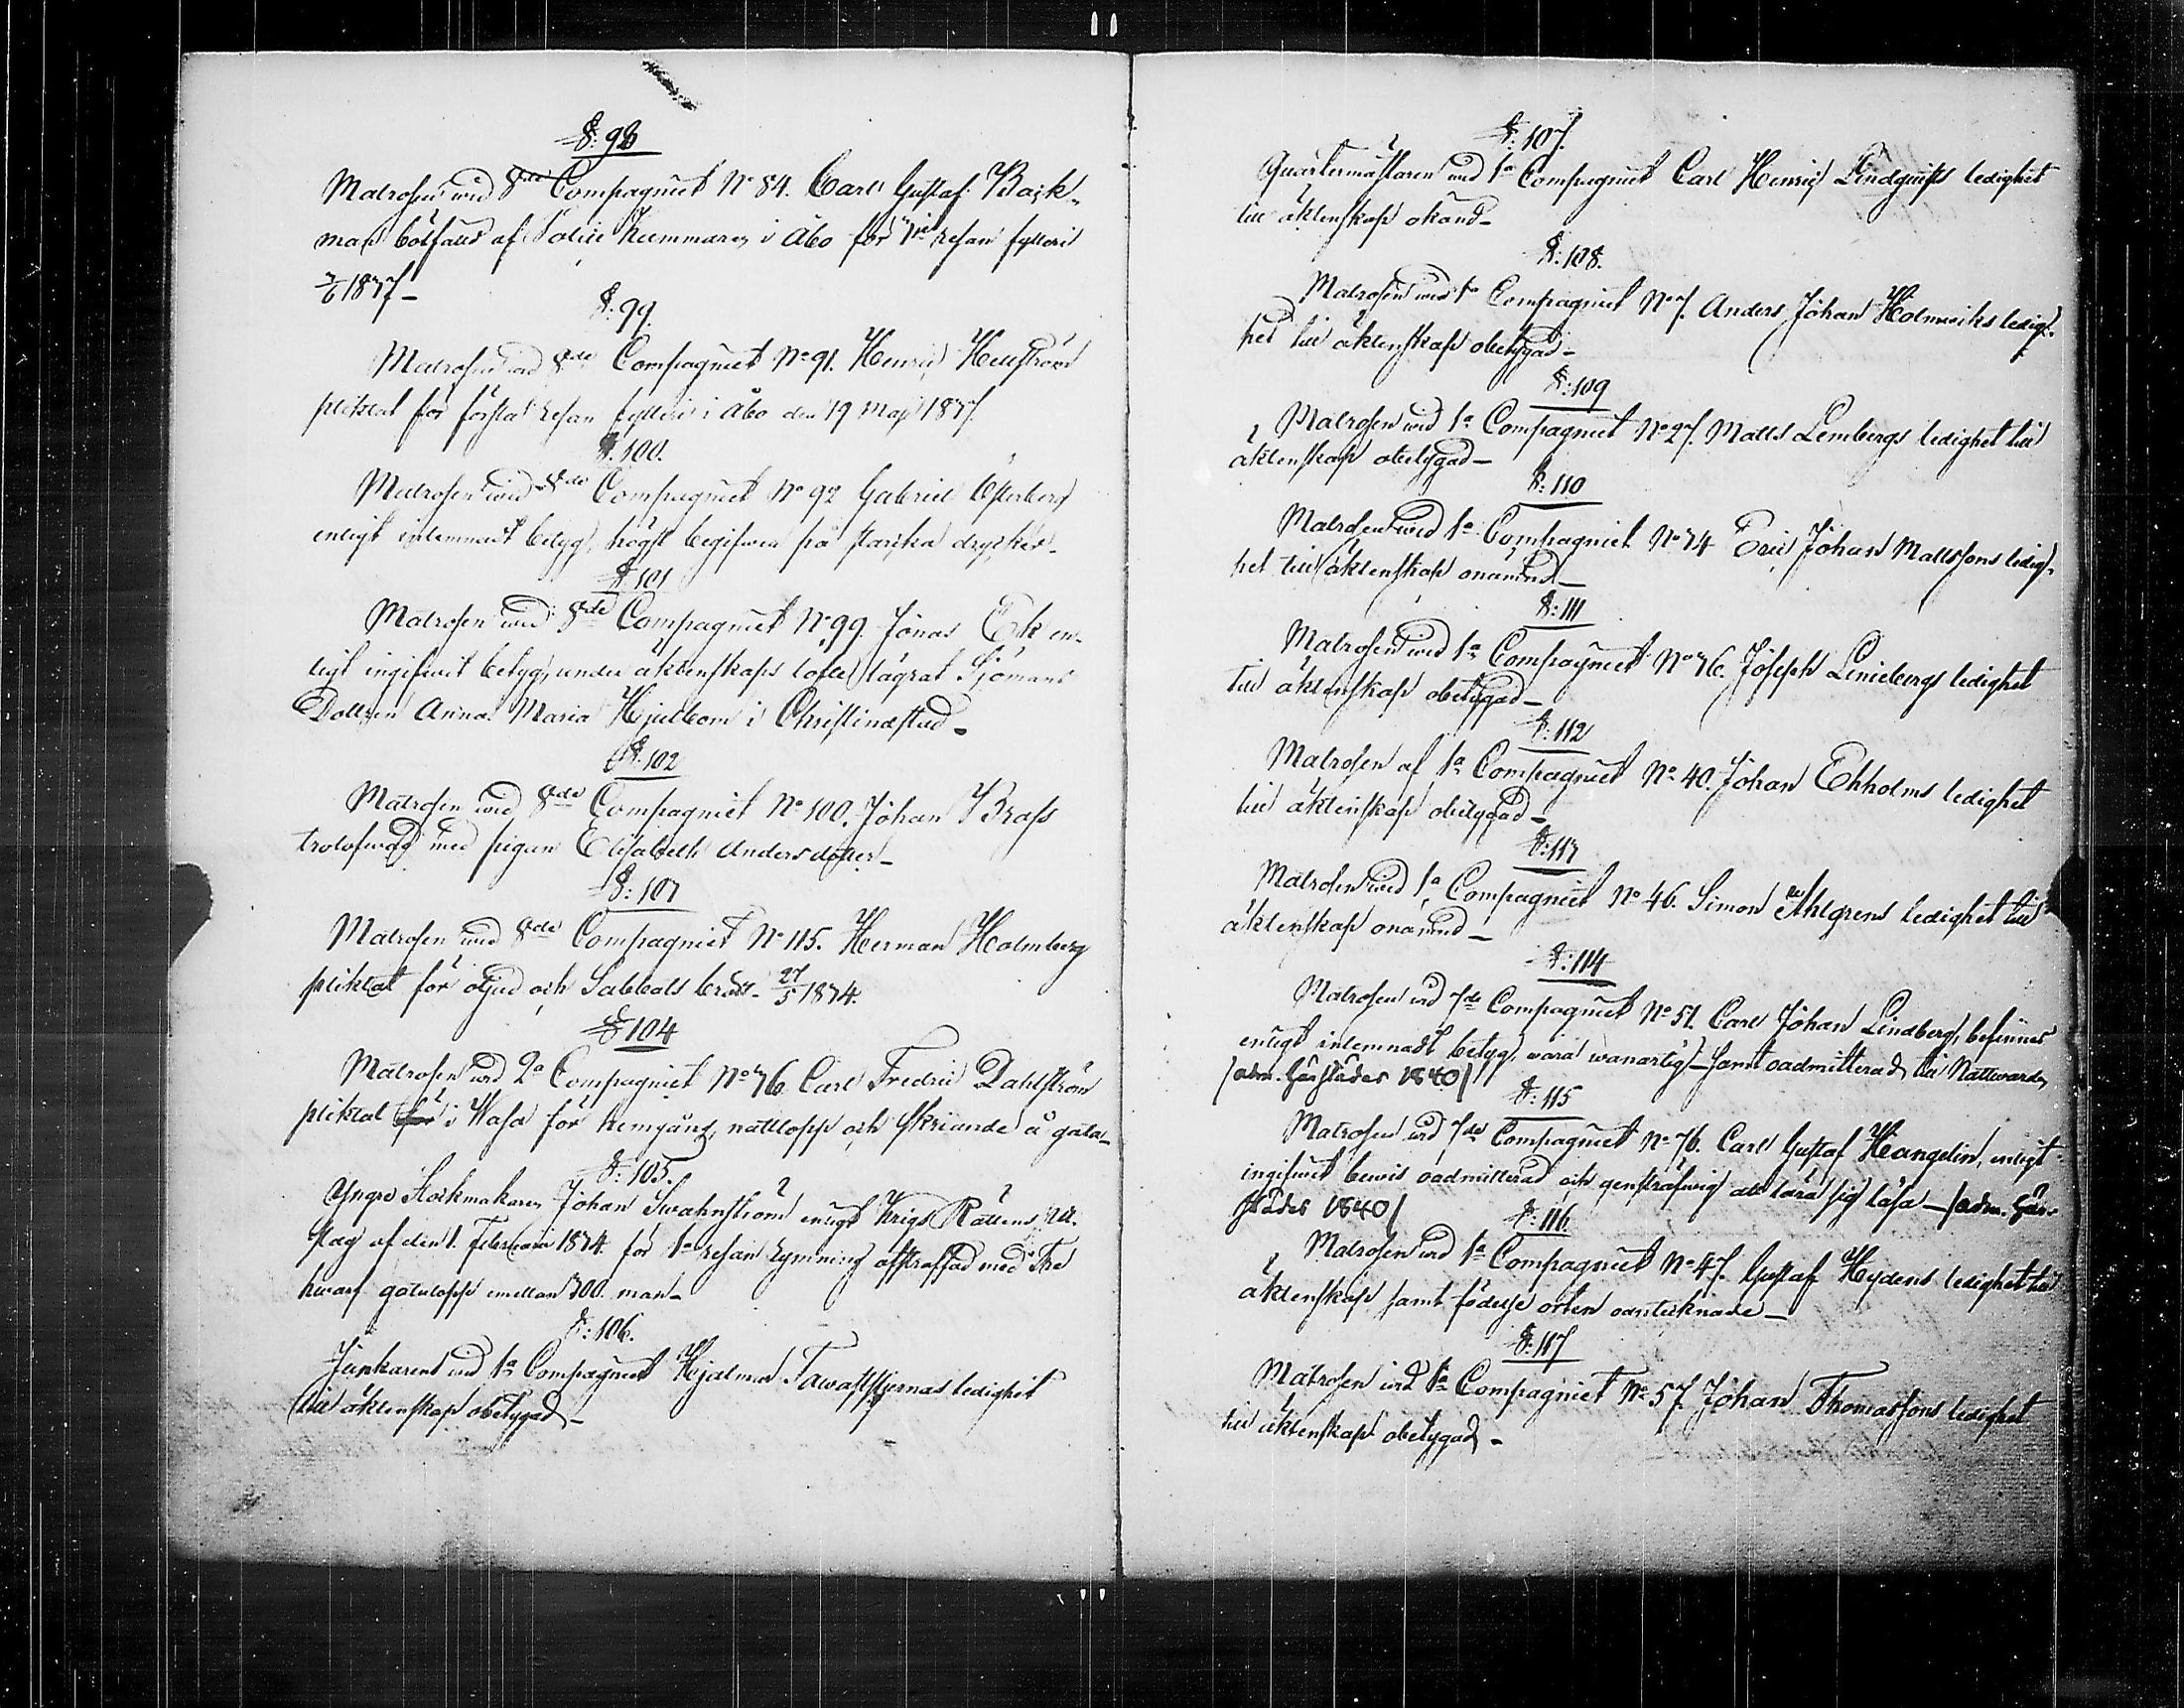 §: 98
Matrosen wid 8de Compagniet No 84. Carl Gustaf Back-
man bötfälld af Police Kummaren i Åbo för 3je resan fylleri
3/6 1837 –
§: 99.
Matrosen wid 8de Compagniet No 91. Henric Hellström
pliktat för första resan fylleri i Åbo den 19 Maji 1837.
§: 100.
Matrosen wid 8de Compagniet No 92 Gabriel Österberg
enligt inlemnadt betyg, högst begifwen på starcka drycker –
§ 101
Matrosen wid 8de Compagniet No 99. Jonas Ek en-
ligt ingifwit betyg, under äktenskaps löfte lägrat Sjömans
Dottren Anna Maria Hjulbom i Christinæstad –
§: 102
Matrosen wid 8de Compagniet No 100. Johan Brass
trolofwad med pigan Elisabeth Andersdotter –
§: 103
Matrosen wid 8de Compagniet No 115. Herman Holmberg
pliktat för oljud och Sabbats brott – 27/5 1834.
§ 104
Matrosen wid 2a Compagniet No 36 Carl Fredric Dahlström
pliktat för i Wasa för hemgång, nattlopp och skriande å gata –
§: 105.
Yngre Stockmakaren Johan Swahnström enligt Krigs Rättens ut-
slag af den 1. Februari 1834. för 1a resan rymning afstraffad med Tre
hwarf gatulopp emellan 300 man –
§: 106.
Junkaren wid 1a Compagniet Hjalmar Tawaststjernas ledighet
till äktenskap obetygad –
§: 107.
Quartermästaren wid 1a Compagniet Carl Henric Lindquists ledighet
till äktenskap okänd –
§: 108.
Matrosen wid 1a Compagniet No 7. Anders Johan Holmwiks ledig-
het till äktenskap obetygad –
§: 109
Matrosen wid 1a Compagniet No 27. Matts Lembergs ledighet till
äktenskap obetygad –
§: 110
Matrosen wid 1a Compagniet No 34 Eric Johan Mattssons ledig-
het till äktenskap onämnd –
§: 111
Matrosen wid 1a Compagniet No 36. Joseph Leniebergs ledighet
till äktenskap obetygad –
§: 112
Matrosen af 1a Compagniet No 40. Johan Ekholms ledighet
till äktenskap obetygad –
§: 113
Matrosen wid 1a Compagniet No 46. Simon Åhlgrens ledighet till
äktenskap onämnd –
§: 114
Matrosen wid 7de Compagniet No 51. Carl Johan Lindberg, befinnes
enligt inlemnadt betyg, wara wanartig – samt oadmitterad till Nattwarden
/adm. härstädes 1840/
§: 115
Matrosen wid 7de Compagniet No 76. Carl Gustaf Heangelin, enligt
ingifwet bewis oadmitterad och genstrafwig att lära sig läsa – /adm. här-
städes 1840/
§: 116
Matrosen wid 1a Compagniet No 47. Gustaf Heydens ledighet till
äktenskap samt födelse orten oantecknade –
§: 117
Matrosen wid 1a Compagniet No 57. Johan Thomassons ledighet
till äktenskap obetygad –